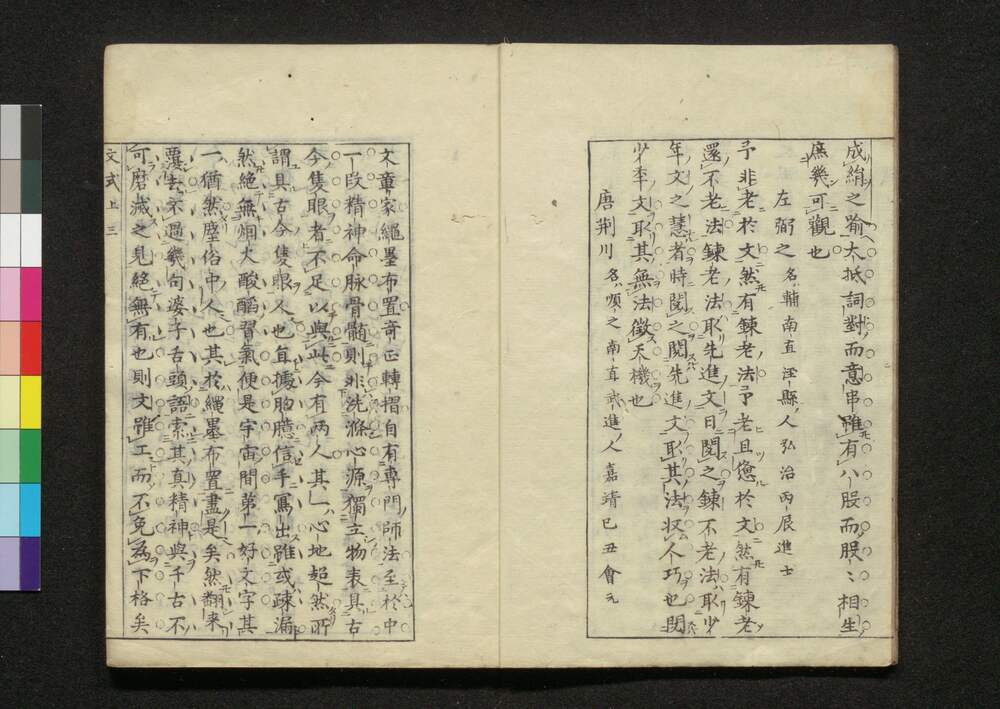 成絹之喻大抵詞對而意串雖有八股而股〻相生
庶幾可觀也
左弼之名輔南直涇縣人弘治丙辰進士
予非老於文然有錬老法予老且倦於文然有錬老
還不老法錬老法取先進文日閱之錬不老法取少
年文之慧者時閱之閱先進文取其法収人巧也閱
少年文取其無法徵天機也
唐荊川名順之南直武進人嘉靖己丑會元
文章家繩墨布置奇正轉摺自有專門師法至於中
一段精神命脉骨髓則非洗滌心源獨立物表具古
今隻眼者不足以與此今有兩人其一心地超然所
謂具古今隻眼人也即據胸臆信手寫出雖或疎漏
然絕無烟火酸醎習氣便是宇宙間第一好文字其
一猶然塵俗中人也其於繩墨布置盡是矣然翻来
覆去不過幾句婆子舌頭語索其真精神與千古不
可磨滅之見絕無有也則文雖工而不免為下格矣
文式上 三